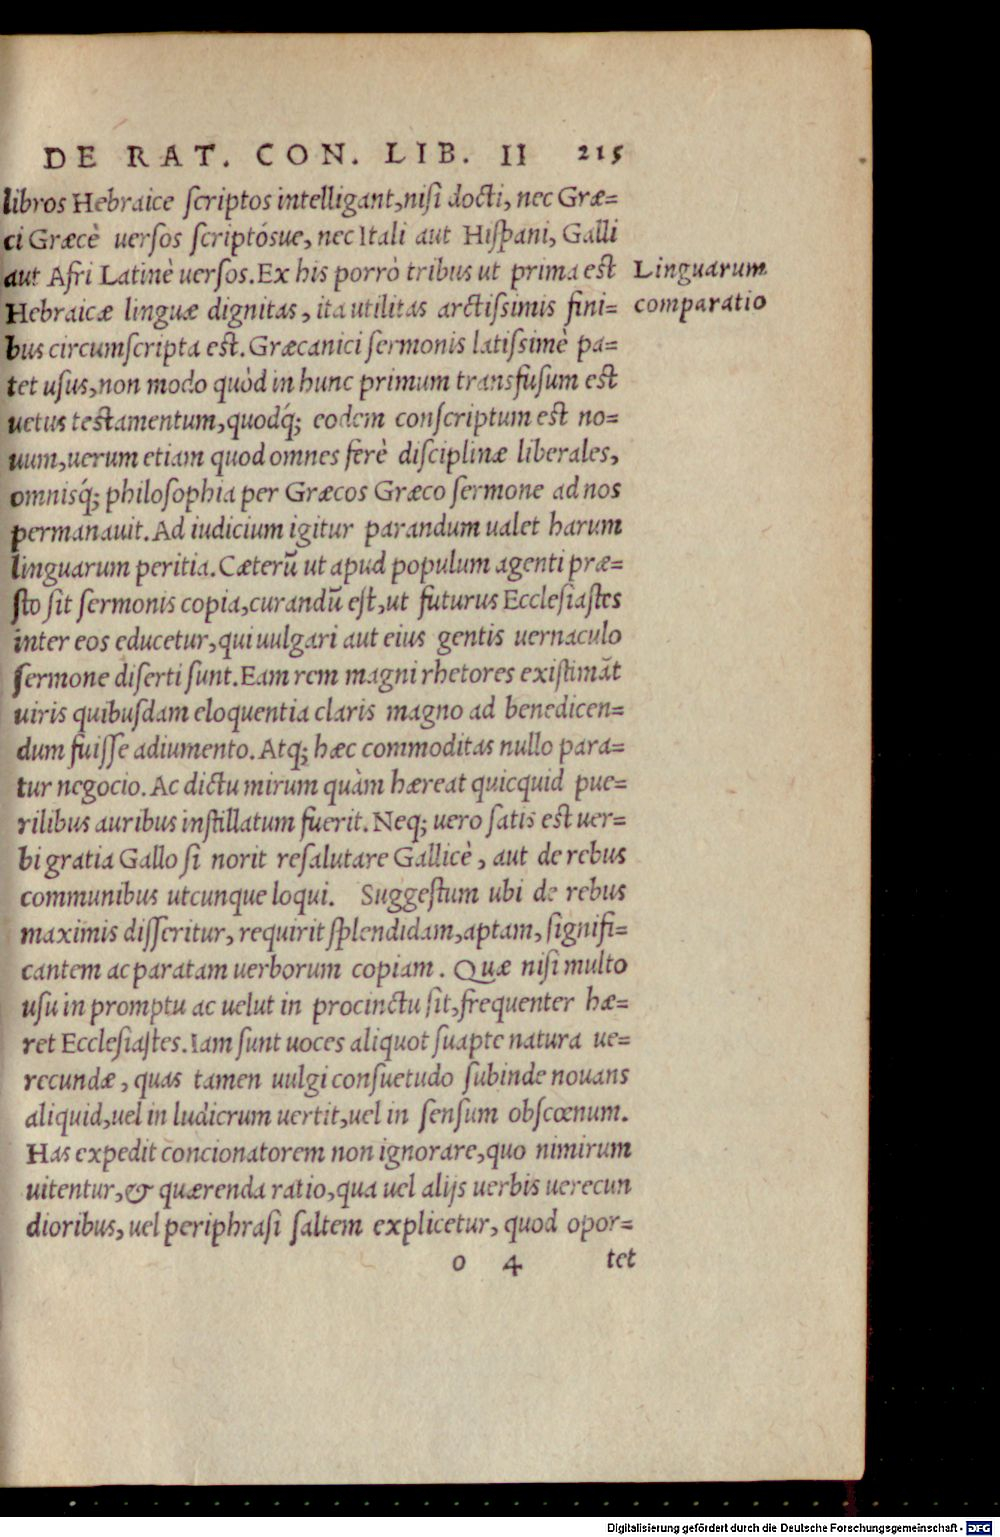 DE RAT. CON. LIB. II 215
libros Hebraice scriptos intelligant,nisi docti, nec Græ=
ci Græcè uersos scriptósue, nec Itali aut Hispani, Galli
aut Afri Latinè uersos. Ex his porrò tribus ut prima est
Linguarum
Hebraicæ linguæ dignitas, ita utilitas arctissimis fini=
comparatio
bus circumscripta est. Græcanici sermonis latissimè pa=
tet usus, non modo quòd in hunc primum transfusum est
uetus testamentum, quodq́; eodem conscriptum est no=
uum, uerum etiam quod omnes ferè disciplinæ liberales,
omnisq́; philosophia per Græcos Græco sermone ad nos
permanauit. Ad iudicium igitur parandum ualet harum
linguarum peritia. Cæterū ut apud populum agenti præ=
sto sit sermonis copia, curandū est, ut futurus Ecclesiastes
inter eos educetur, qui uulgari aut eius gentis uernaculo
sermone diserti sunt. Eam rem magni rhetores existimāt
uiris quibusdam eloquentia claris magno ad benedicen=
dum fuisse adiumento. Atq; hæc commoditas nullo para=
tur negocio. Ac dictu mirum quàm hæreat quicquid pue=
rilibus auribus instillatum fuerit. Neq; uero satis est uer=
bi gratia Gallo si norit resalutare Gallicè, aut de rebus
communibus utcunque loqui. Suggestum ubi de rebus
maximis disseritur, requirit splendidam, aptam, signifi=
cantem ac paratam uerborum copiam. Quæ nisi multo
usu in promptu ac uelut in procinctu sit, frequenter hæ=
ret Ecclesiastes. Iam sunt uoces aliquot suapte natura ue=
recundæ, quas tamen uulgi consuetudo subinde nouans
aliquid, uel in ludicrum uertit, uel in sensum obscœnum.
Has expedit concionatorem non ignorare, quo nimirum
uitentur, & quærenda ratio, qua uel alijs uerbis uerecun
dioribus, uel periphrasi saltem explicetur, quod opor=
o 4 tet
Digitalisierung gefördert durch die Deutsche Forschungsgemeinschaft - DFG